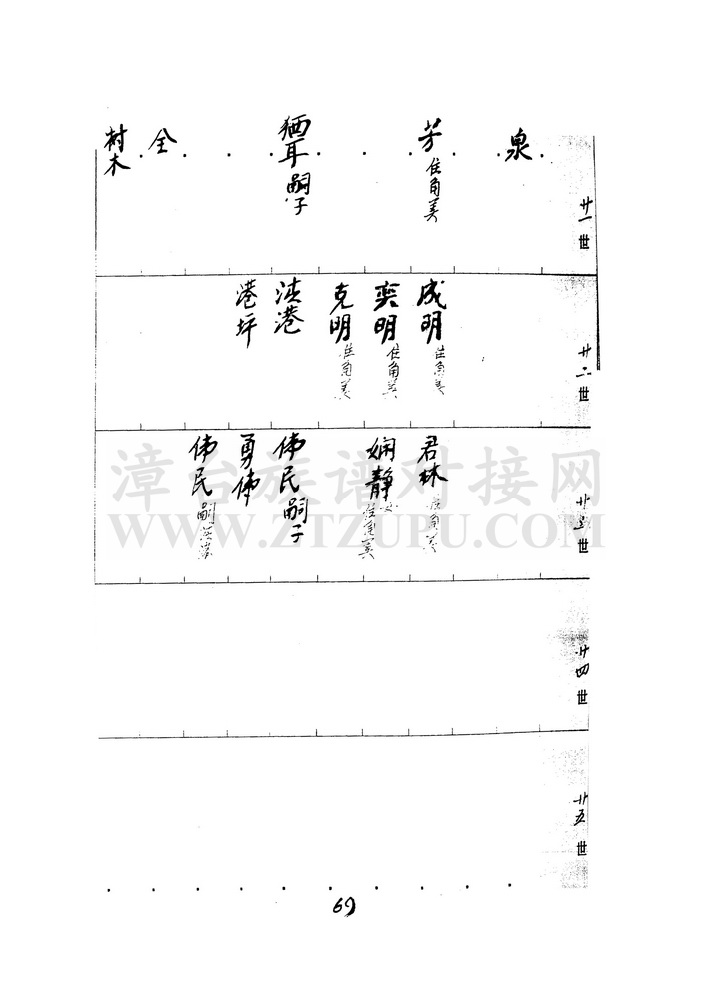 廿一世
泉
芳 住角美
猫耳 嗣子
全
树木
廿二世
成明 住角美
奕明 住角美
克明 住角美
洪港
港坪
廿三世
君林 住角美
娴静 女 住角美
伟民 嗣子
勇伟
伟民 嗣洪港
廿四世
廿五世
69
漳台族谱对接网
WWW.ZTZUPU.COM